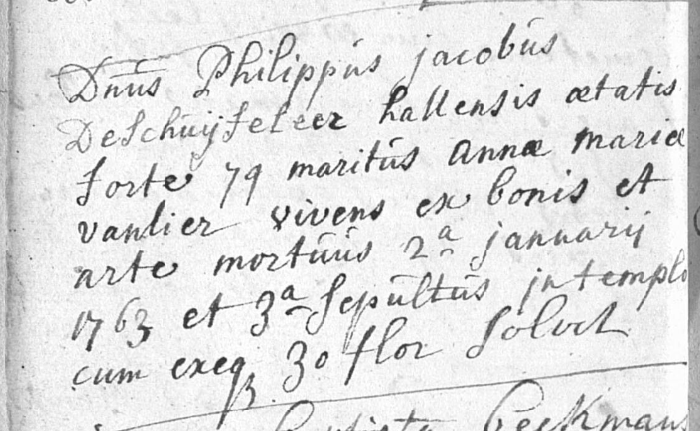 Dnus Philippus jacobus
Deschuijfeleer hallensis ætatis
forte 79 maritus Annæ mariæ
vanlier vivens ex bonis et
arte mortuus 2a januarij
1763 et 3a sepultus in templo
cum exeq 30 flor solvit
Beeckmans